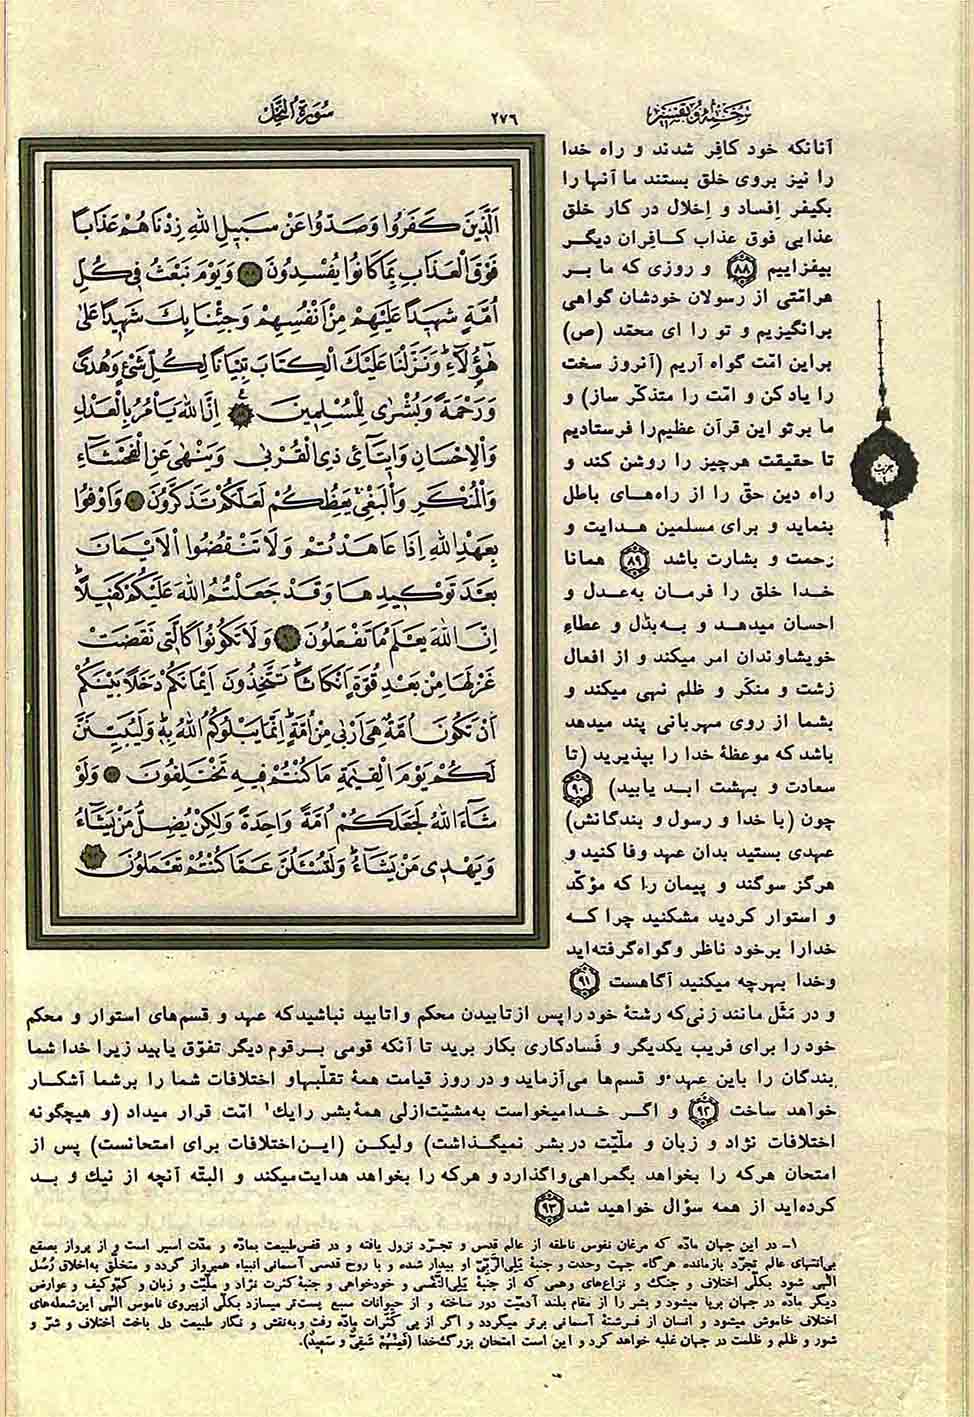 ترجمه و تفسیر
٢٧٦
سورة النحل
الَّذینَ كَفَرُوا وَصَدُّوا عَنْ سَبیلِ اللهِ زِدْنَاهُمْ عَذَاباً
فَوْقَ الْعَذَابِ بِمَا كَانُوا یُفْسِدُونَ ٨٨ وَیَوْمَ نَبْعَثُ فی كُلِّ
اُمَّةٍ شَهیداً عَلَیْهِمْ مِنْ اَنْفُسِهِمْ وَجِئْنَا بِكَ شَهیداً عَلیٰ
هٰؤُلَآءِ وَنَزَّلْنَا عَلَیْكَ الْكِتَابَ تِبْیَاناً لِكُلِّ شَیْءٍ وَهُدیً
وَرَحْمَةً وَبُشْریٰ لِلْمُسْلِمینَ ٨٩ اِنَّ اللهَ یَأْمُرُ بِالْعَدْلِ
وَالْاِحْسَانِ وَایتَآئِ ذِی الْقُرْبیٰ وَیَنْهیٰ عَنِ الْفَحْشَآءِ
وَالْمُنْكَرِ وَالْبَغْیِ یَعِظُكُمْ لَعَلَّكُمْ تَذَكَّرُونَ ٩٠ وَاَوْفُوا
بِعَهْدِ اللهِ اِذَا عَاهَدْتُمْ وَلَا تَنْقُضُوا الْاَیْمَانَ
بَعْدَ تَوْكیدِهَا وَقَدْ جَعَلْتُمُ اللهَ عَلَیْكُمْ كَفیلاً
اِنَّ اللهَ یَعْلَمُ مَا تَفْعَلُونَ ٩١ وَلَا تَكُونُوا كَالَّتی نَقَضَتْ
غَزْلَهَا مِنْ بَعْدِ قُوَّةٍ اَنْكَاثاً تَتَّخِذُونَ اَیْمَانَكُمْ دَخَلاً بَیْنَكُمْ
اَنْ تَكُونَ اُمَّةٌ هِیَ اَرْبیٰ مِنْ اُمَّةٍ اِنَّمَا یَبْلُوكُمُ اللهُ بِهٖ وَلَیُبَیِّنَنَّ
لَكُمْ یَوْمَ الْقِیٰمَةِ مَا كُنْتُمْ فیهِ تَخْتَلِفُونَ ٩٢ وَلَوْ
شَآءَ اللهُ لَجَعَلَكُمْ اُمَّةً وَاحِدَةً وَلٰكِنْ یُضِلُّ مَنْ یَشَآءُ
وَیَهْدی مَنْ یَشَآءُ وَلَتُسْئَلُنَّ عَمَّا كُنْتُمْ تَعْمَلُونَ ٩٣
آنانکه خود کافِر شدند و راه خدا
را نیز بروی خلق بستند ما آنها را
بکیفر اِفساد و اِخلال در کار خلق
عذابی فوق عذاب کافِران دیگر
بیفزاییم ٨٨ و روزی که ما بر
هرامّتی از رسولان خودشان گواهی
برانگیزیم و تو را ای محمّد (ص)
براین امّت گواه آریم (آنروز سخت
را یاد کن و امّت را متذکّر ساز) و
ما برتو این قرآن عظیم‌را فرستادیم
تا حقیقت هرچیز را روشن کند و
راه دین حقّ را از راه‌های باطل
بنماید و برای مسلمین هدایت و
رحمت و بشارت باشد ٨٩ همانا
خدا خلق را فرمان به‌عدل و
احسان میدهد و به‌بذْل و عطاءِ
خویشاوندان امر میکند و از افعال
زشت و منکَر و ظلم نهی میکند و
بشما از روی مهربانی پند میدهد
باشد که موعظهٔ خدا را بپذیرید (تا
سعادت و بهشت ابد یابید) ٩٠
چون (با خدا و رسول و بندگانش)
عهدی بستید بدان عهد وفا کنید و
هرگز سوگند و پیمان را که مؤکّد
و استوار کردید مشکنید چرا که
خدارا برخود ناظر و گواه‌گرفته‌اید
وخدا بهرچه میکنید آگاهست ٩١
حزب
و در مَثَل مانند زنی‌که رشتهٔ خود را پس از تابیدن محکم واتابید نباشیدکه عهد و قسم‌های استوار و محکم
خود را برای فریب یکدیگر و فَسادکاری بکار برید تا آنکه قومی برقوم دیگر تفوّق یابید زیرا خدا شما
بندگان را باین عهد و قسم‌ها می‌آزماید و در روز قیامت همهٔ تقلّبهاو اختلافات شما را برشما آشکار
خواهد ساخت ٩٢ و اگر خدامیخواست به‌مشیّت‌ازلی همهٔ بشر رایك۱ امّت قرار میداد (و هیچگونه
اختلافات نژاد و زبان و ملیّت دربشر نمیگذاشت) ولیکن (این‌اختلافات برای امتحانست) پس از
امتحان هرکه را بخواهد بگمراهی‌واگذارد و هرکه را بخواهد هدایت‌میکند و البتّه آنچه از نیك و بد
کرده‌اید از همه سؤال خواهید شد ٩٣
۱ـ در این جهان مادّه که مرغان نفوس ناطقه از عالم قدس و تجرّد نزول یافته و در قفس‌طبیعت بمادّه و مدّت اسیر است و از پرواز بصقع
بی‌انتهای عالم تجرّد بازمانده هرگاه جهت وحدت و جنبهٔ یَلِی‌الرَّبّیِ او بیدار شده و با روح قدسی آسمانی انبیاء همپرواز گردد و متخلّق به‌اخلاق رُسُل
الٰهی شود بکلّی اختلاف و جنگ و نزاع‌های وهمی که از جنبهٔ یَلِی‌النَّفْسی و خودخواهی و جنبهٔ کثرت نژاد و ملیّت و زبان و کمّ‌وکیف و عوارض
دیگر مادّه در جهان برپا میشود و بشر را از مقام بلند آدمیّت دور ساخته و از حیوانات سبع پست‌تر میسازد بکلّی ازپیروی ناموس الٰهی این‌شعله‌های
اختلاف خاموش میشود و انسان از فرشتهٔ آسمانی برتر میگردد و اگر از پی کَثَرات مادّه رفت و به‌نقش و نگار طبیعت دل باخت اختلاف و شرّ و
شور و ظلم و ظلمت در جهان غلبه خواهد کرد و این است امتحان بزرگ‌خدا (فَمِنْهُمْ شَقِیٌّ وَ سَعِیدٌ).